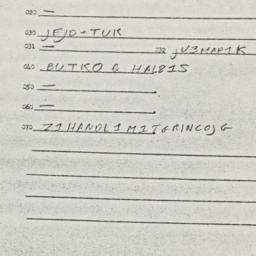 020 —
030 JEJD-TUR
031 — 032 JV3MAP1K
040 BUTKO & HAL81S
050 —
060 —
070 Z1HANDL1M1TGRINCOJG